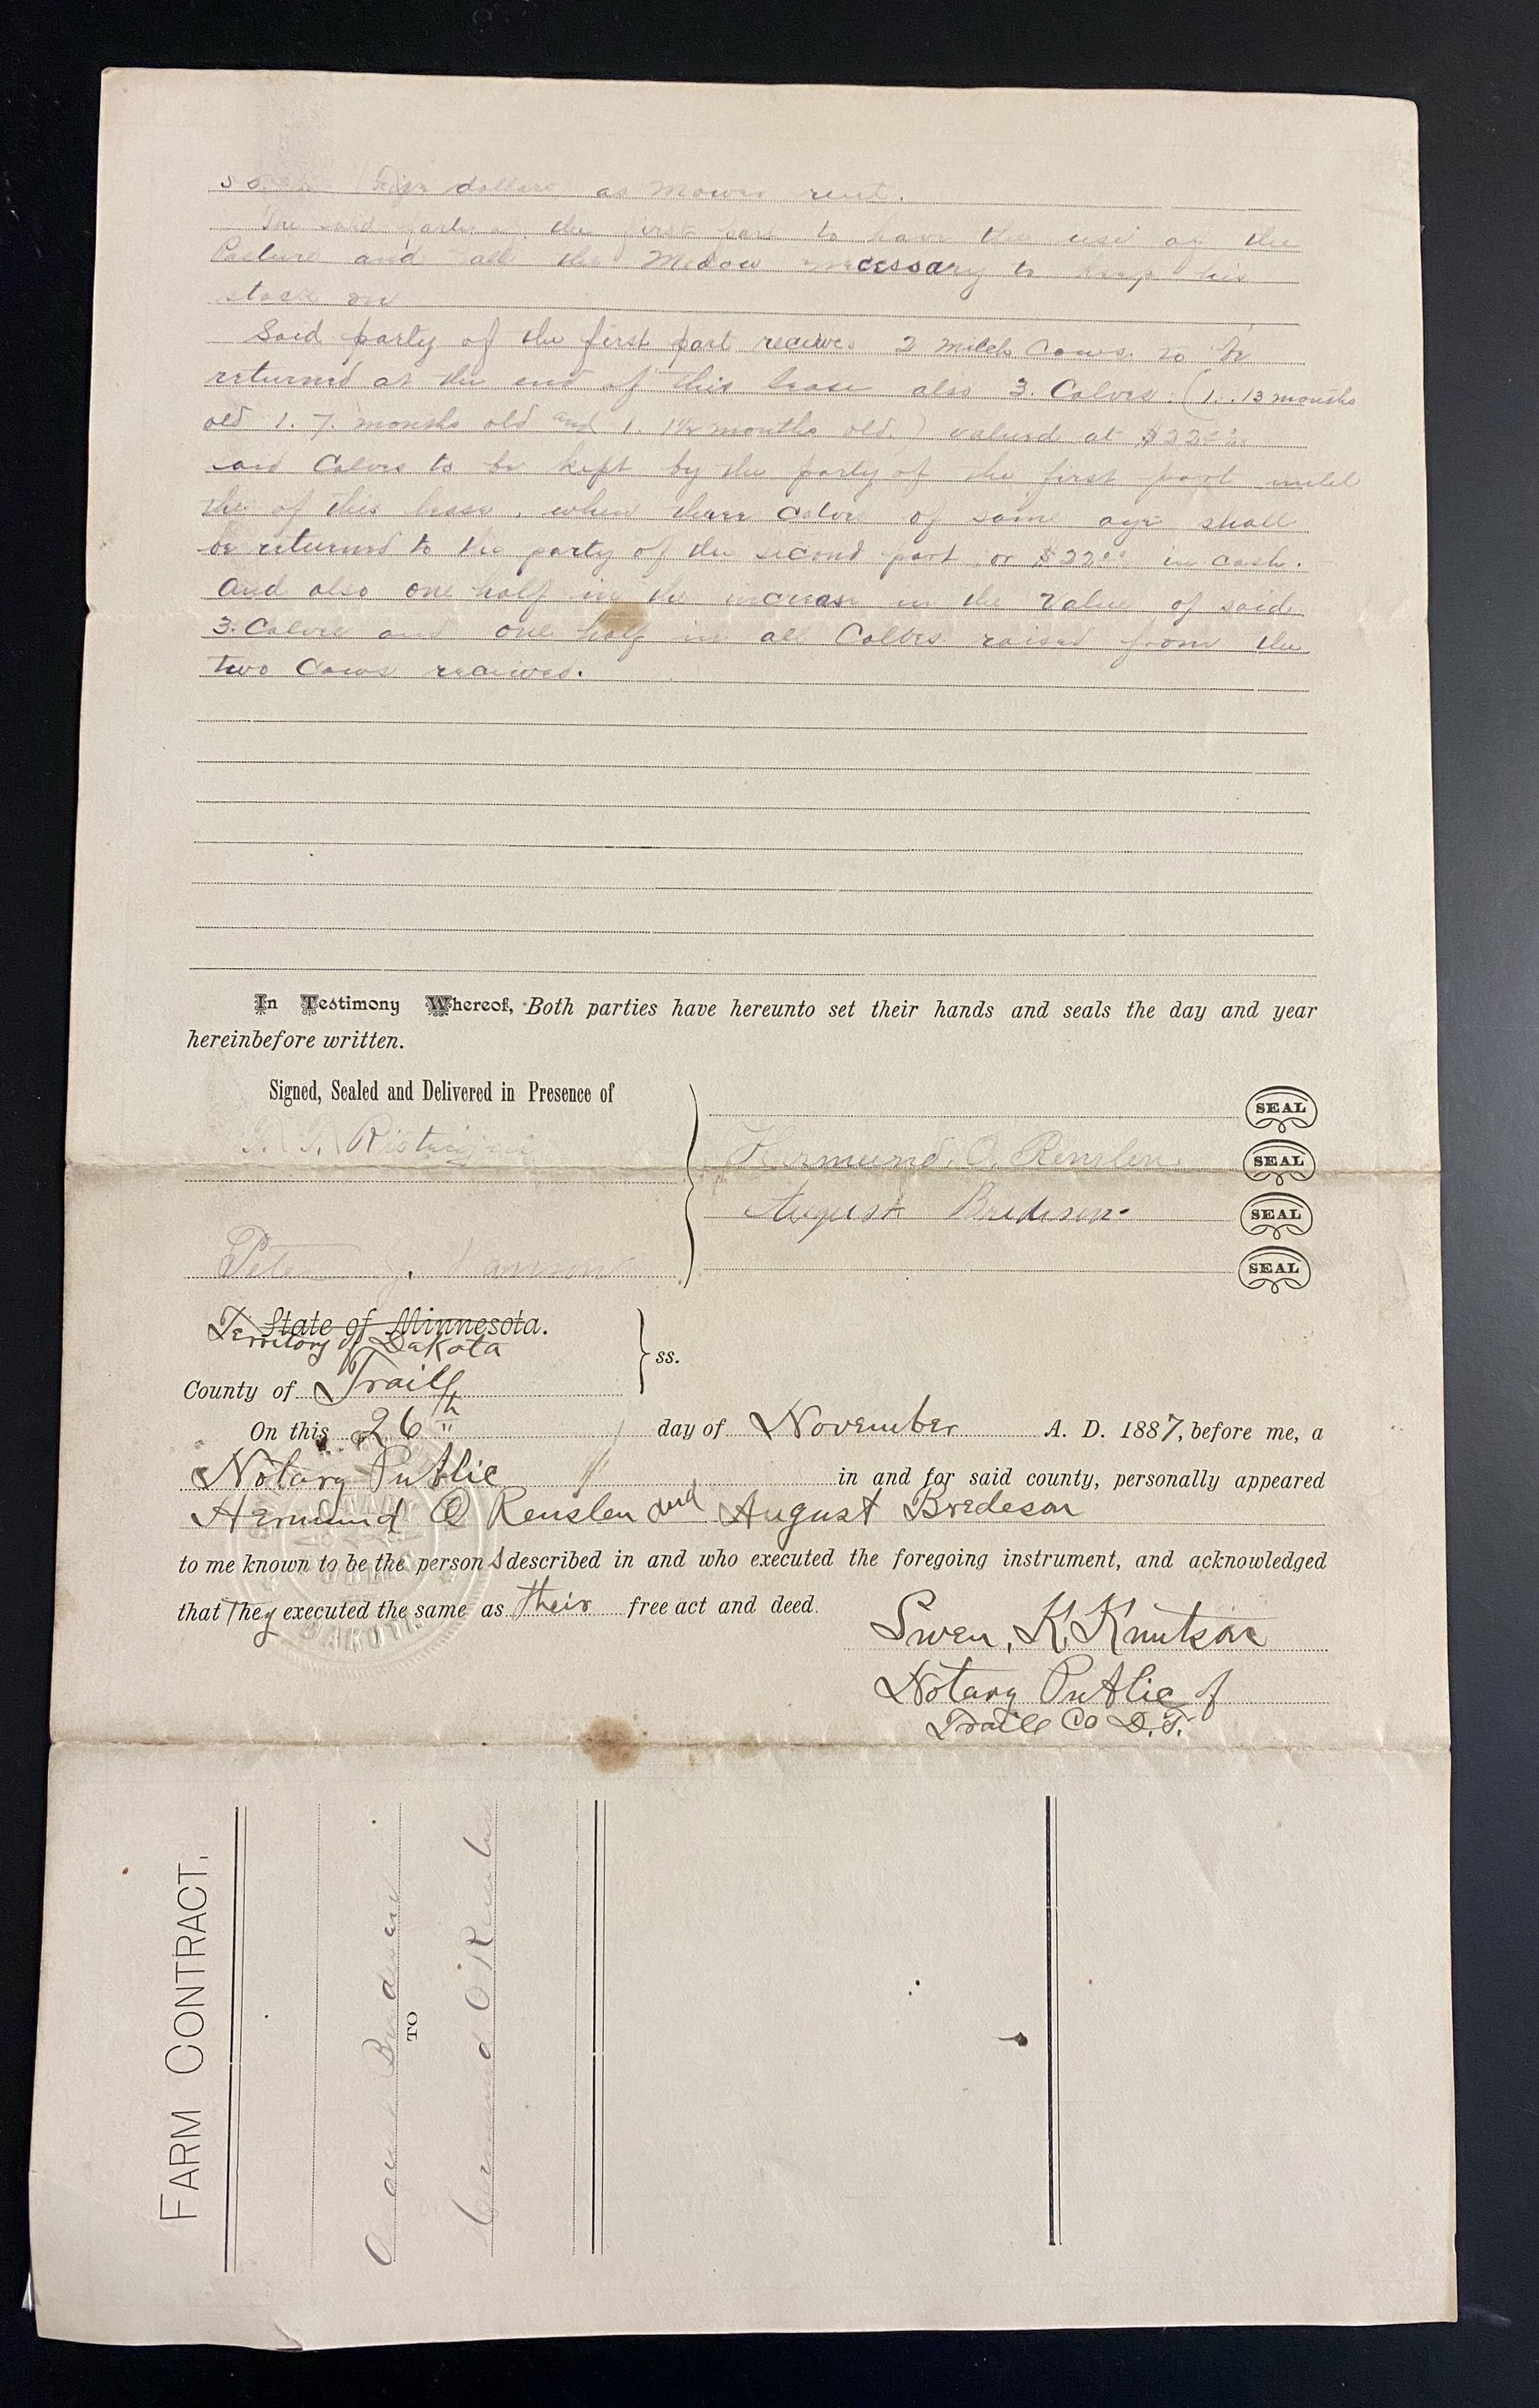 dollars as Mower rent.
The said party of the first part to have the use of the
Pasture and all the Medow necessary to keep his
stock on
Said party of the first part recieves 2 milch Cows to be
returned at the end of this lease also 3. Calves. (1. 13 months
old 1. 7. months old and 1. 1½ months old.) valued at $22.00
said Calves to be kept by the party of the first part until
the of this lease, when three calves of same age shall
be returned to the party of the second part or $22.00 in cash.
And also one half in the increase in the Value of said
3. Calves and one half in all Calves raised from the
two Cows recieves.
In Testimony Whereof, Both parties have hereunto set their hands and seals the day and year
hereinbefore written.
Signed, Sealed and Delivered in Presence of
SEAL
Hermund. O. Renslen SEAL
August Bredeson. SEAL
Peter J.
SEAL
State of Minnesota.
Territory of Dakota
ss.
County of Traill
On this 26th day of November A. D. 1887, before me, a
Notary Public in and for said county, personally appeared
Hermund O Renslen and August Bredeson
to me known to be the persons described in and who executed the foregoing instrument, and acknowledged
that They executed the same as their free act and deed.
Swen, K. Knutson
Notary Public of
Traill Co D.T.
DAKOTA
FARM CONTRACT.
TO